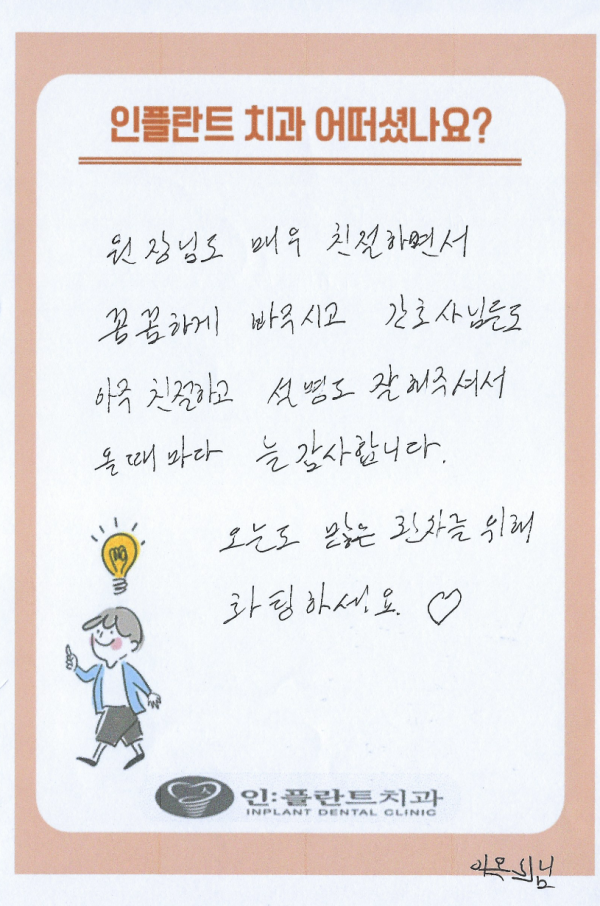 인플란트 치과 어떠셨나요?
원장님도 매우 친절하면서
꼼꼼하게 봐주시고 간호사님들도
아주 친절하고 설명도 잘 해주셔서
올때마다 늘 감사합니다.
오늘도 많은 환자를 위해
화팅하세요. ♡
인:플란트치과
INPLANT DENTAL CLINIC